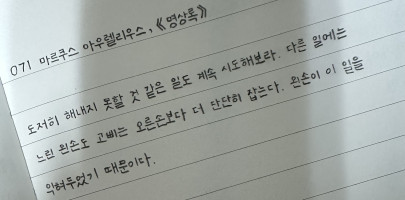 071 마르쿠스 아우렐리우스, 《명상록》
도저히 해내지 못할 것 같은 일도 계속 시도해보라. 다른 일에는
느린 왼손도 고삐는 오른손보다 더 단단히 잡는다. 왼손이 이 일을
익혀두었기 때문이다.